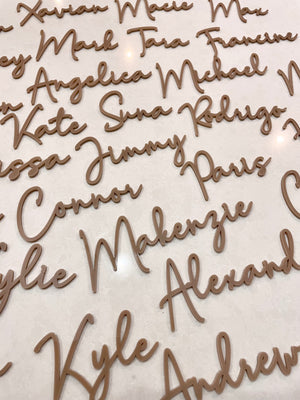 Xavian Macie Max
Mark Tara Francine
Angelica Michael
Kate Suna Rodrigo
Jimmy Paris
Connor Makenzie
Kylie Alexand
Kyle Andrew